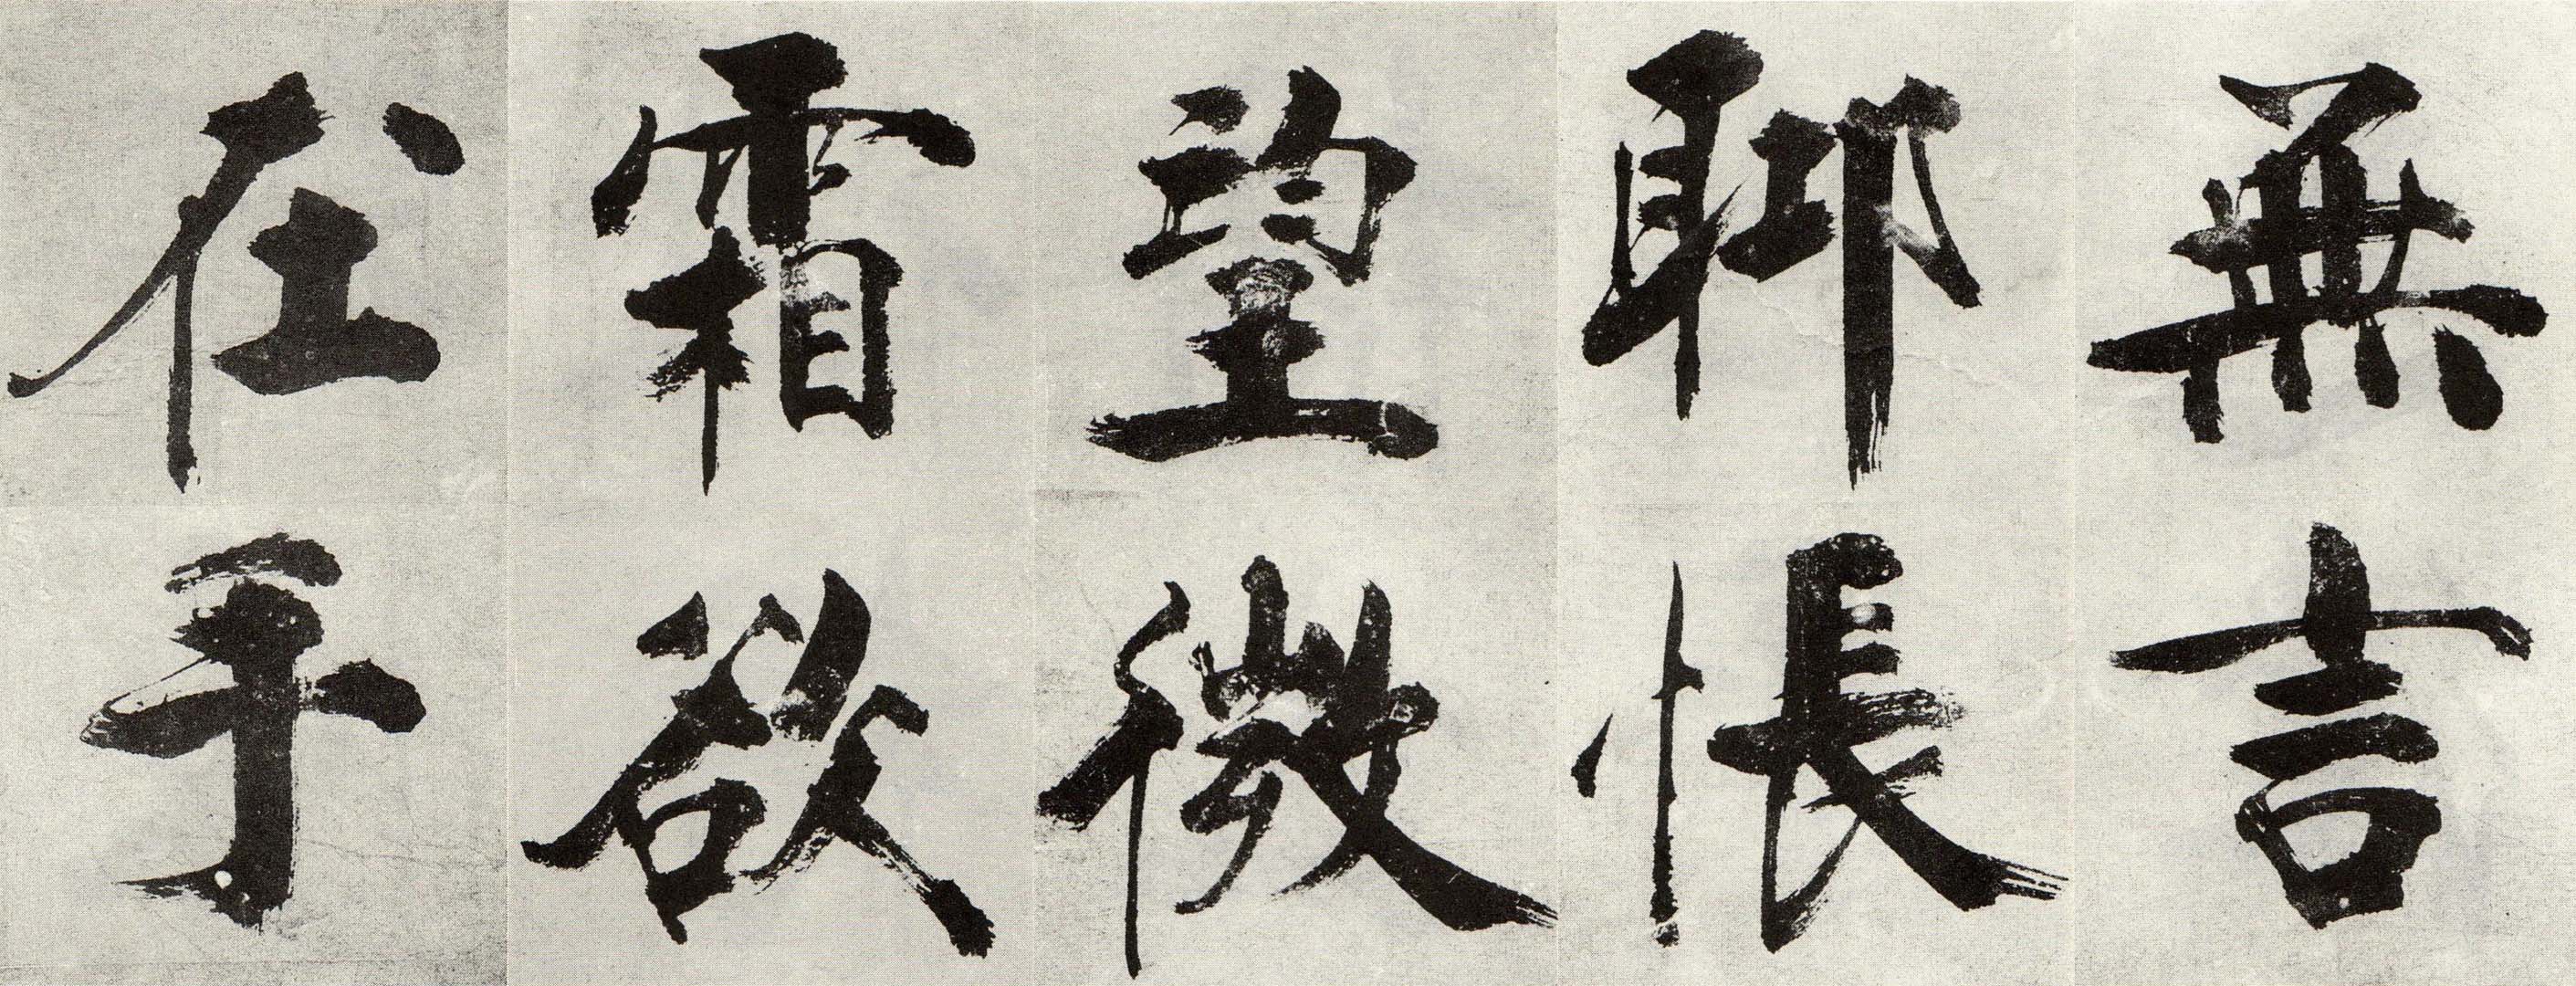 無言
聊悵
望微
霜欲
在手